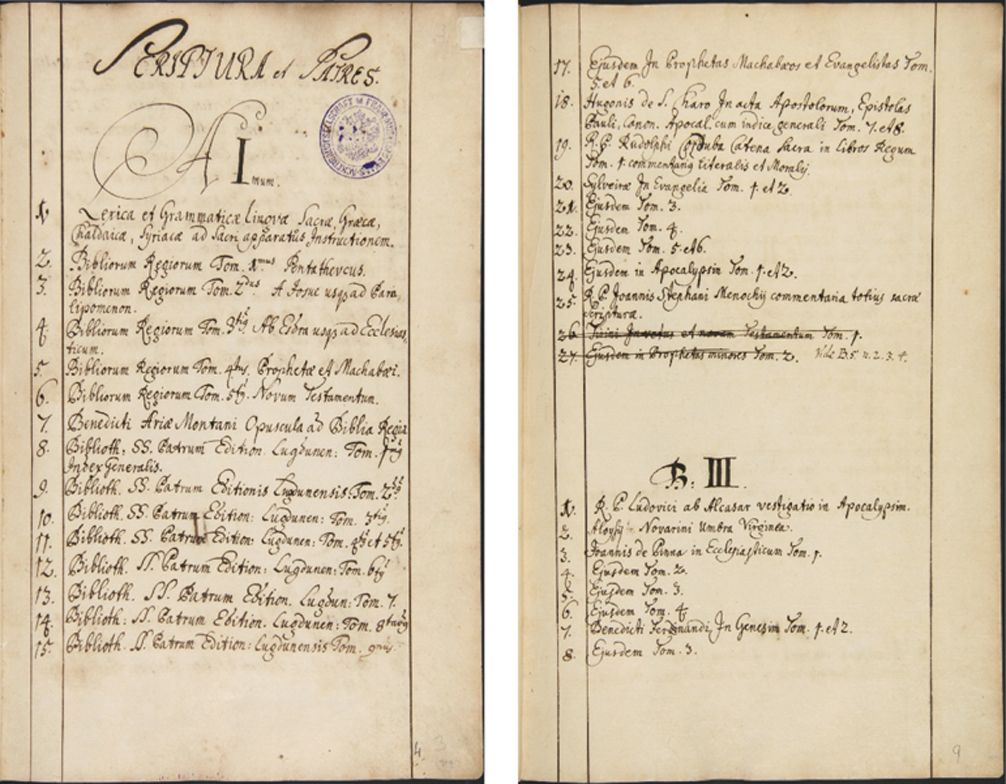 SCRIPTURA et PATRES.
A I
mum.
1. Lexica et Grammaticæ Linguæ Sacræ, Græcæ,
Chaldaicæ, Syriacæ ad Sacri apparatus Instructionem.
2. Bibliorum Regiorum Tom. 1mus Pentatheucus.
3. Bibliorum Regiorum Tom. 2dus A Josue usqs ad Para,
lipomenon.
4. Bibliorum Regiorum Tom. 3tius Ab Esdra usqs ad Ecclesias,
ticum.
5. Bibliorum Regiorum Tom. 4tus. Prophetæ et Machabæi.
6. Bibliorum Regiorum Tom. 5tus. Novum Testamentum.
7. Benedicti Ariæ Montani Opuscula ad Biblia Regia
8. Biblioth. SS. Patrum Edition. Lugdunen: Tom.
Index Generalis.
9. Biblioth. SS. Patrum Editionis Lugdunensis Tom. 2dus
10. Biblioth. SS. Patrum Edition: Lugdunen: Tom. 3tius.
11. Biblioth. SS. Patrum Edition: Lugdunen: Tom. 4tus et 5tus.
12. Biblioth. SS. Patrum Edition: Lugdunen: Tom. 6tus
13. Biblioth. SS. Patrum Edition. Lugdun: Tom. 7.
14. Biblioth: SS. Patrum Edition. Lugdunen: Tom. 8tavus
15. Biblioth. SS. Patrum Edition: Lugdunensis Tom. 9nus.
4
17. Ejusdem In Prophetas Machabæos et Evangelistas Tom.
5. et 6.
18. Hugonis de S. Charo In acta Apostolorum, Epistolas
Pauli, Canon. Apocal. cum indice generali Tom. 7. et 8.
19. R. P. Rudolphi Corduba Catena Sacra in Libros Regum
Tom. 1. commentariq Literalis et Moralis.
20. Sylveiræ In Evangelia Tom. 1. et 2.
21. Ejusdem Tom. 3.
22. Ejusdem Tom. 4.
23. Ejusdem Tom. 5. et 6.
24. Ejusdem in Apocalypsin Tom. 1. et 2.
25. R. P. Joannis Stephani Menochij commentaria totius sacræ
scripturæ.
26. Tirini In vetus et novum Testamentum Tom. 1.
27. Ejusdem in Prophetas minores Tom. 2. Vide B. 5. n. 2. 3. 4.
B: III.
1. R. P. Ludovici ab Alcasar vestigatio in Apocalypsim.
2. Aloysij Novarini Umbra Virginea.
3. Joannis de Pinna in Ecclesiasticum Tom. 1.
4. Ejusdem Tom. 2.
5. Ejusdem Tom. 3.
6. Ejusdem Tom. 4.
7. Benedicti Ferdinandi In Genesim Tom. 1. et 2.
8. Ejusdem Tom. 3.
9